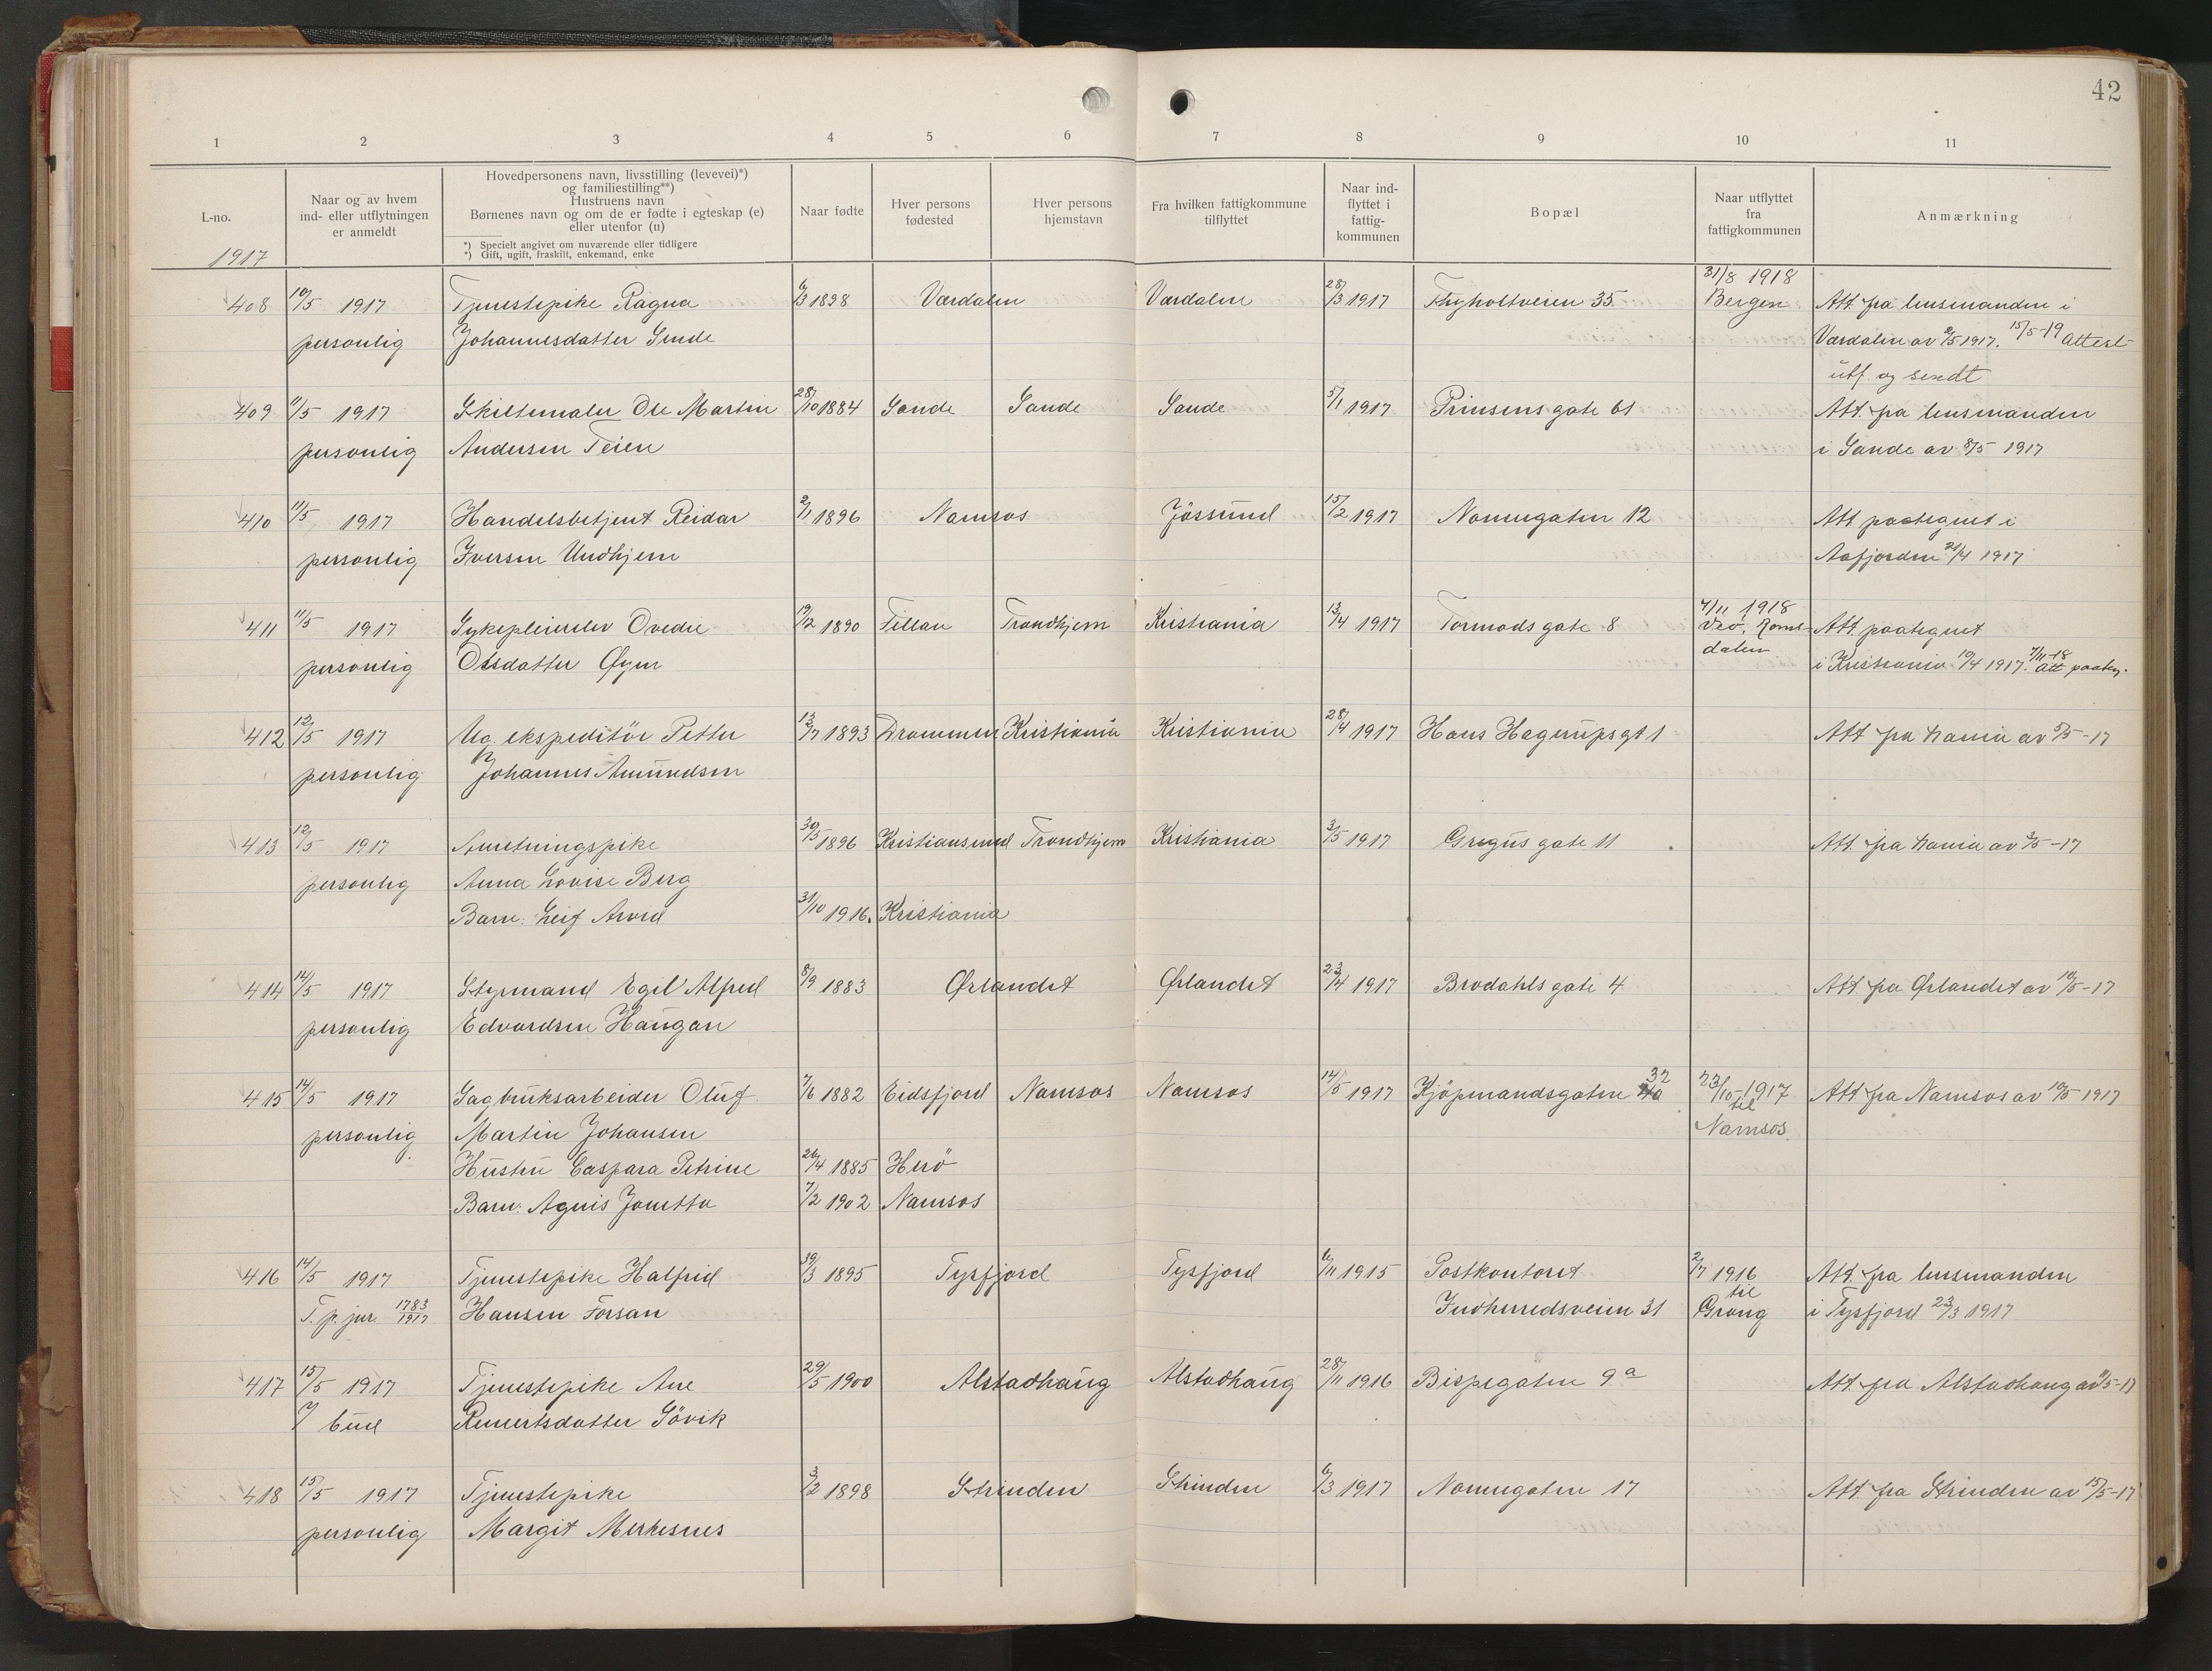 42
1 2 3 4 5 6 7 8 9 10 11
L-no.
1917
Naar og av hvem
ind- eller utflytningen
er anmeldt
Hovedpersonens navn, livsstilling (levevei)*)
og familiestilling**)
Hustruens navn
Børnenes navn og om de er fødte i egteskap (e)
eller utenfor (u)
*) Specielt angivet om nuværende eller tidligere
*) Gift, ugift, fraskilt, enkemand, enke
Naar fødte
Hver persons
fødested
Hver persons
hjemstavn
Fra hvilken fattigkommune
tilflyttet
Naar ind-
flyttet i
fattig-
kommunen
Bopæl
Naar utflyttet
fra
fattigkommunen
Anmærkning
31/8 1918
408 10/5 1917 Tjenestepike Ragna 6/3 1898 Værdalen Værdalen 28/3 1917 Tyholtveien 35 Bergen Att. fra lensmanden i
personlig Johannesdatter Sende Værdalen av 2/5 1917. 15/5-19 Attest
utf. og sendt
409 11/5 1917 Skiltemaler Ole Martin 28/10 1884 Sande Sande Sande 5/1 1917 Prinsens gate 61 Att. fra lensmanden
personlig Andersen Teien i Sande av 8/5 1917
410 11/5 1917 Handelsbetjent Reidar 2/1 1896 Namsos Jössund 15/2 1917 Nonnegaten 12 Att paategnet i
personlig Iversen Undhjem Aafjorden 21/4 1917
7/11 1918
411 11/5 1917 Sykepleierelev Ovedie 19/2 1890 Fillan Trondhjem Kristiania 13/4 1917 Tormods gate 8 Veö, Roms- Att. paategnet
dalen
personlig Olsdatter Øyen i Kristiania 10/4 1917. 7/11-18 Att paateg.
412 12/5 1917 Ug. ekspeditör Petter 13/7 1893 Drammen Kristiania Kristiania 28/4 1917 Hans Hagerups gt 1 Att fra Kania av 5/5-17
personlig Johannes Amundsen
413 12/5 1917 Anretningspike 30/5 1896 Kristiansund Trondhjem Kristiania 3/5 1917 Gregus gate 11 Att. fra Kania av 3/5-17
personlig Anna Lovise Berg
Barn: Leif Arvid 31/10 1916. Kristiania
414 14/5 1917 Styrmand Egil Alfred 8/9 1883 Ørlandet Ørlandet 23/4 1917 Brodahls gate 4 Att. fra Ørlandet av 10/5-17
personlig Edvardsen Haugan
32
415 14/5 1917 Sagbruksarbeider Oluf 7/6 1882 Eidsfjord Namsos Namsos 14/5 1917 Kjöpmandsgaten 40 23/10-1917 Att fra Namsos av 10/5 1917
til
personlig Martin Johansen Namsos
Hustru Caspara Petrine 26/4 1885 Herö
Barn: Agnis Jonetta 7/2 1902 Namsos
416 14/5 1917 Tjenestepike Halfrid 30/3 1895 Tysfjord Tysfjord 6/11 1915 Postkontoret 2/7 1916 Att. fra lensmanden
til
T. p. jur. 1783/1917 Hansen Forsan Indherredsveien 31 Grong i Tysfjord 23/3 1917
417 15/5 1917 Tjenestepike Ane 29/5 1900 Alstadhaug Alstadhaug 28/11 1916 Bispegaten 9a Att. fra Alstadhaug av 11/5-17
bud Reinertsdatter Sövik
418 15/5 1917 Tjenestepike 3/2 1898 Strinden Strinden 6/3 1917 Nonnegaten 17 Att fra Strinden av 15/5-17
personlig Margit Merkesnes